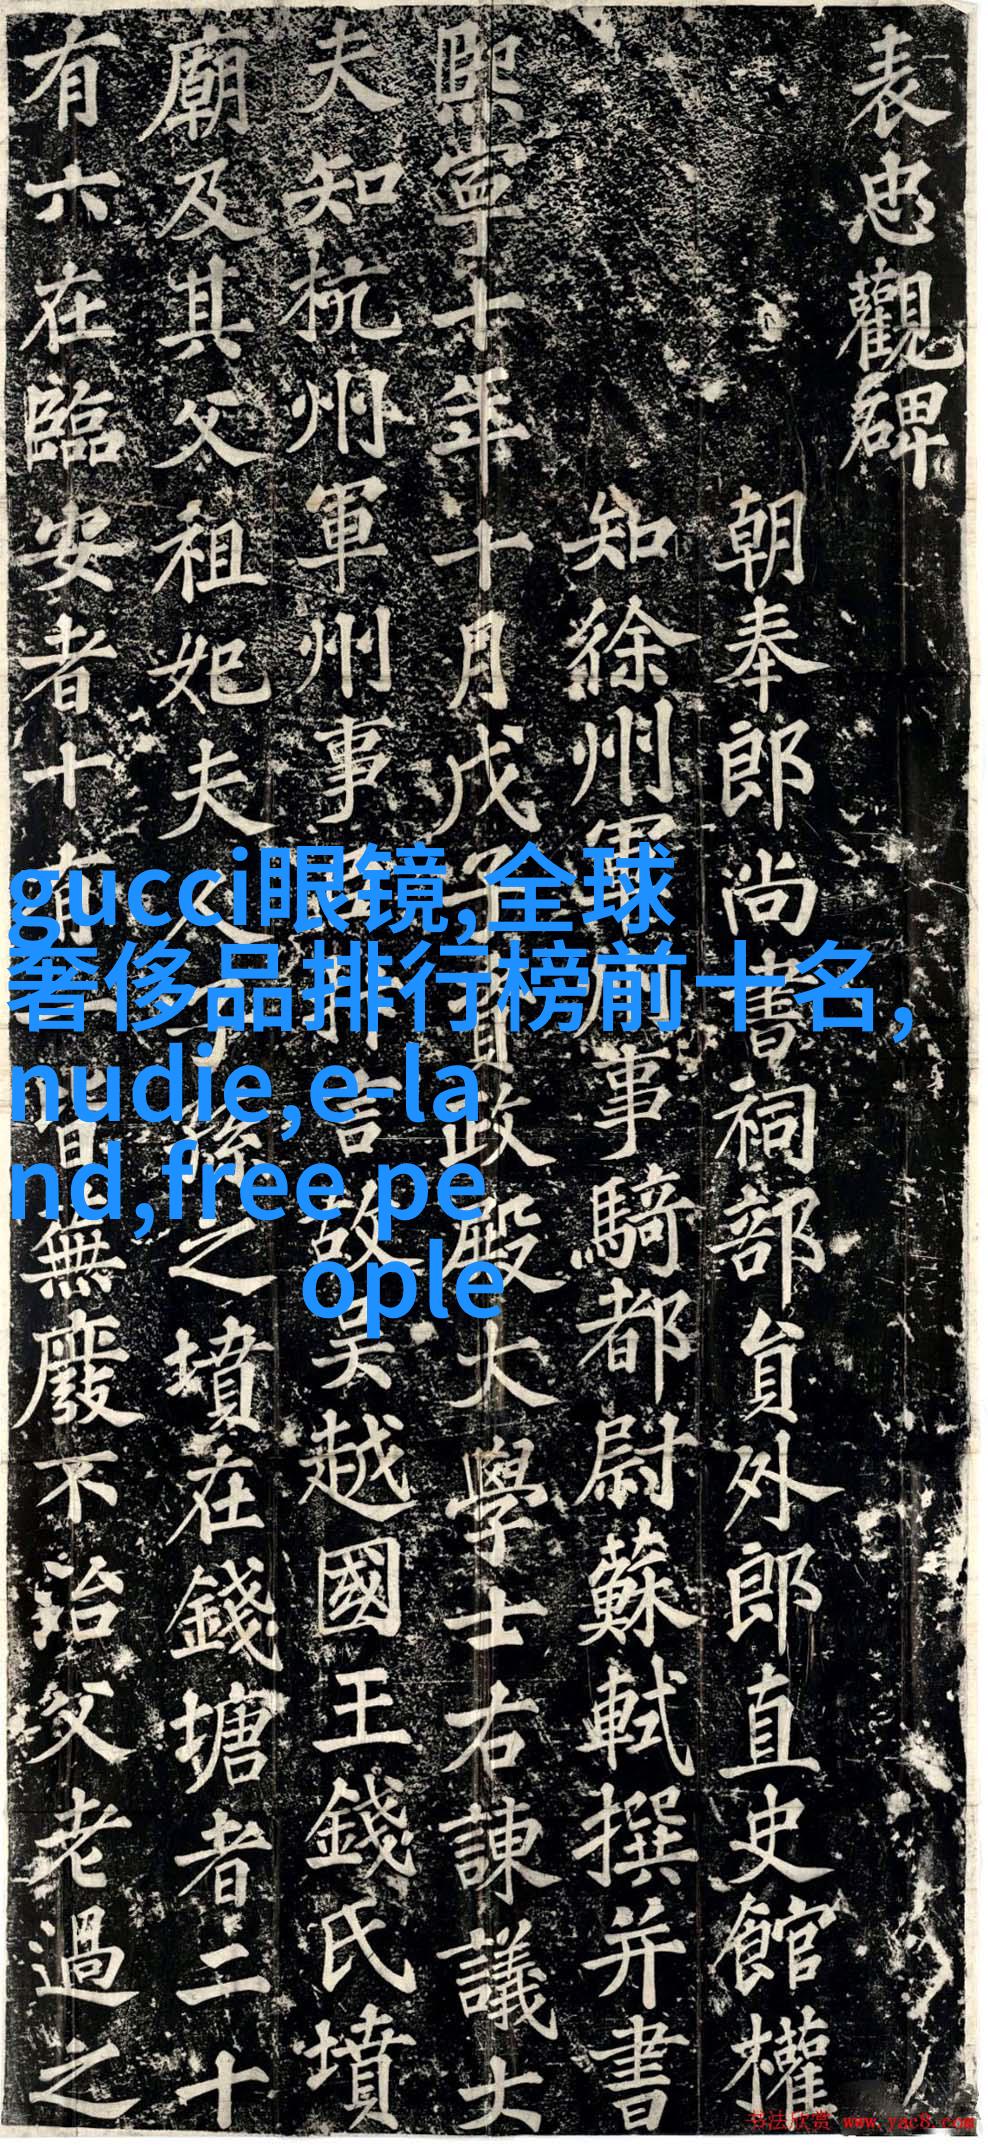 表忠觀碑
朝奉郎尚書祠部員外郎直史館權
知徐州軍州事騎都尉蘇軾撰并書
熙寧十年十月戊子資政殿大學士右諫議大
夫知杭州軍州事臣抃言故吳越國王錢氏墳
廟及其父祖妃夫人子孫之墳在錢塘者二十
有六在臨安者十有一皆蕪廢不治父老過之
gucci眼镜,全球
奢侈品排行榜前十名,
nudie,e-la
nd,free pe
ople
书法欣赏 www.yac8.com